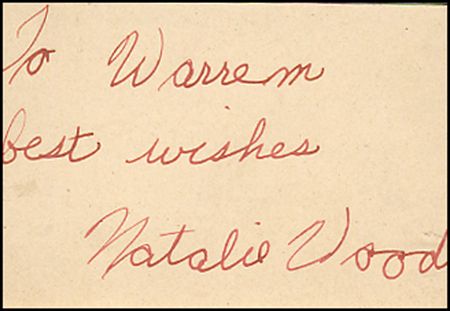 To Warrem
best wishes
Natalie Wood